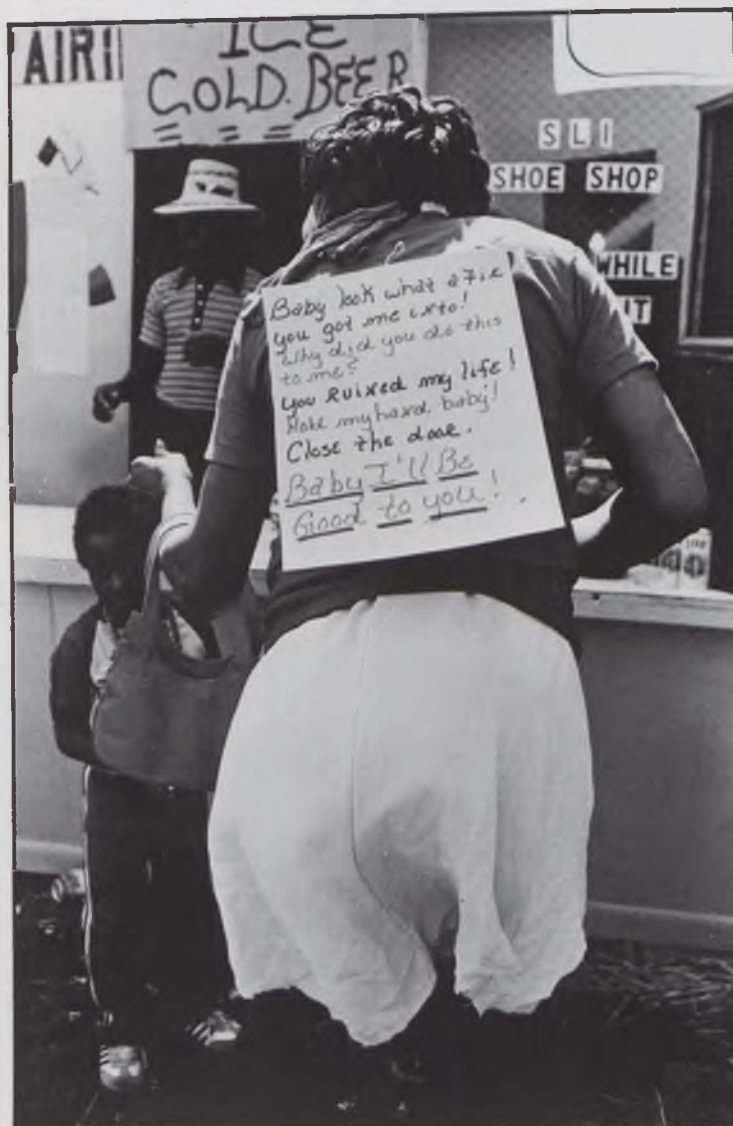 AIRI
ICE
COLD BEER
SLI
SHOE SHOP
WHILE
IT
Baby look what a Fix
you got me ixto!
Why did you do this
to me?
You Ruixed my life!
Hold my haxd baby!
Close the dooR.
Baby I'll Be
Good to you!